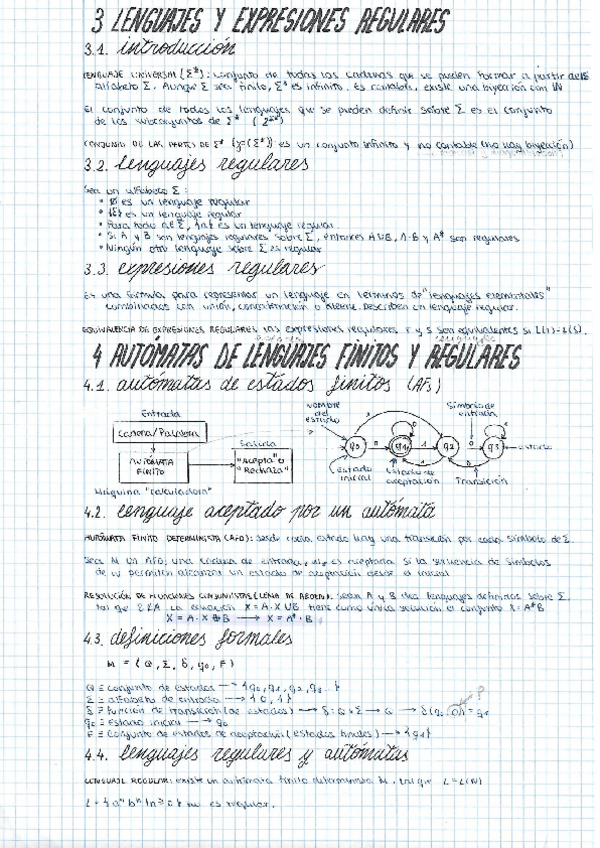 3 LENGUAJES Y EXPRESIONES REGULARES
3.1. introducción
LENGUAJE UNIVERSAL (Σ*): conjunto de todas las cadenas que se pueden formar a partir del
alfabeto Σ. Aunque Σ sea finito, Σ* es infinito. Es contable, existe una biyección con ℕ
El conjunto de todos los lenguajes que se pueden definir sobre Σ es el conjunto
de los subconjuntos de Σ*
CONJUNTO DE LAS PARTES DE Σ*: es un conjunto infinito y no contable (no hay biyección)
3.2. lenguajes regulares
Sea un alfabeto Σ:
• Ø es un lenguaje regular
• {ε} es un lenguaje regular
• Para todo a ∈ Σ, {a} es un lenguaje regular
• Si A y B son lenguajes regulares sobre Σ, entonces A∪B, A·B y A* son regulares
• Ningún otro lenguaje sobre Σ es regular
3.3. expresiones regulares
Es una fórmula para representar un lenguaje en términos de "lenguajes elementales"
combinados con unión, concatenación o kleene. Describen un lenguaje regular.
EQUIVALENCIA DE EXPRESIONES REGULARES: las expresiones regulares r y s son equivalentes si L(r)=L(s).
4 AUTÓMATAS DE LENGUAJES FINITOS Y REGULARES
4.1. autómatas de estados finitos (AFs)
Entrada
Cadena/Palabra
AUTÓMATA
FINITO
Salida
"Acepta" o
"Rechaza"
Máquina "calculadora"
nombre
del
estado
Símbolo de
entrada
q0 0 q1 1 q2 0 q3
estado
estado
inicial
estado de
aceptación
Transición
4.2. lenguaje aceptado por un autómata
AUTÓMATA FINITO DETERMINISTA (AFD): desde cada estado hay una transición por cada símbolo de Σ.
Sea M un AFD, una cadena de entrada, w, es aceptada si la secuencia de símbolos
de w permiten alcanzar un estado de aceptación desde el inicial
RESOLUCIÓN DE ECUACIONES (LEMA DE ARDEN): sean A y B dos lenguajes definidos sobre Σ
tal que ε∉A. La ecuación X = A·X ∪ B tiene como única solución el conjunto X = A*B
X = A·X + B → X = A*·B
4.3. definiciones formales
M = (Q, Σ, δ, q0, F)
Q ≡ conjunto de estados → {q0, q1, q2, q3}
Σ ≡ alfabeto de entrada → {0, 1}
δ ≡ función de transición (de estados) → δ: Q×Σ → Q → δ(q0,0) = q1
q0 ≡ Estado inicial → q0
F ≡ conjunto de estados de aceptación (estados finales) → {q1}
4.4. lenguajes regulares y autómatas
LENGUAJE REGULAR: existe un autómata finito determinista M, tal que L = L(M)
L = {aⁿ bⁿ | n ≥ 0} no es regular.